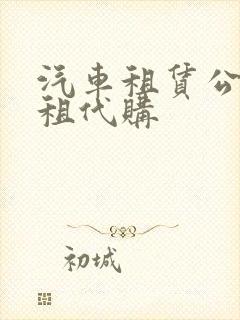 汽車租賃公
租代購
初城